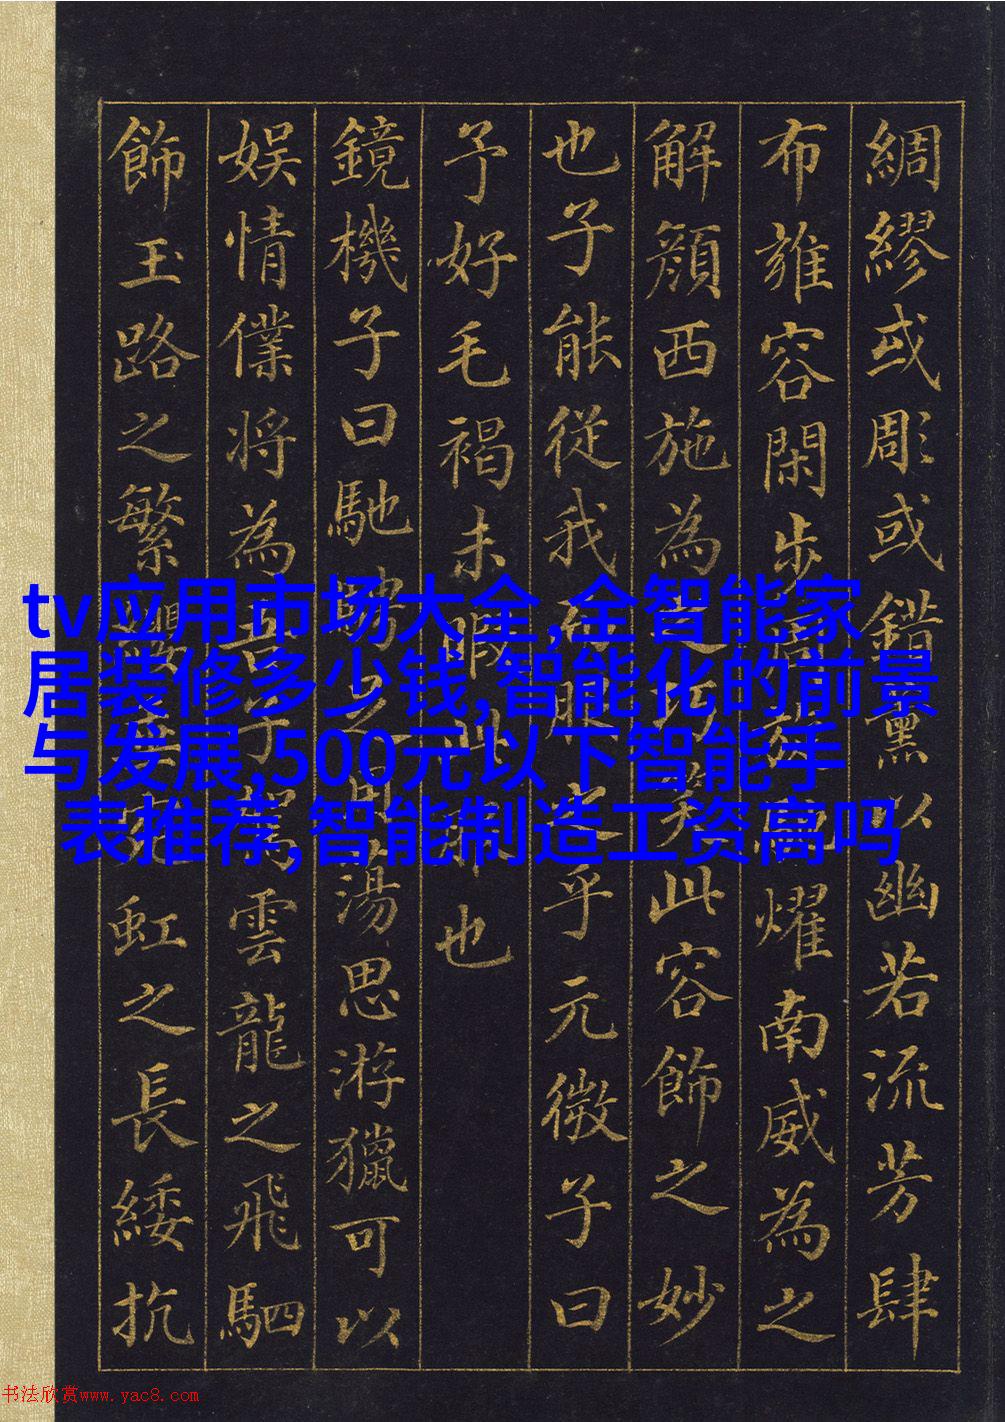 綢繆或彫或錯以幽若流芳肆
布雍容閑步燿南威為之
解顏西施為之巧笑此容飾之妙
也子能從我而服之乎元微子曰
予好毛褐未暇此服也
鏡機子曰馳騁足用蕩思游獵可以
娛情僕將為吾子駕雲龍之飛駟
飾玉路之繁纓垂宛虹之長緌抗
tv应用市场大全,全智能家
居装修多少钱,智能化的前景
与发展,500元以下智能手
表推荐,智能制造工资高吗
书法欣赏www.yac8.com